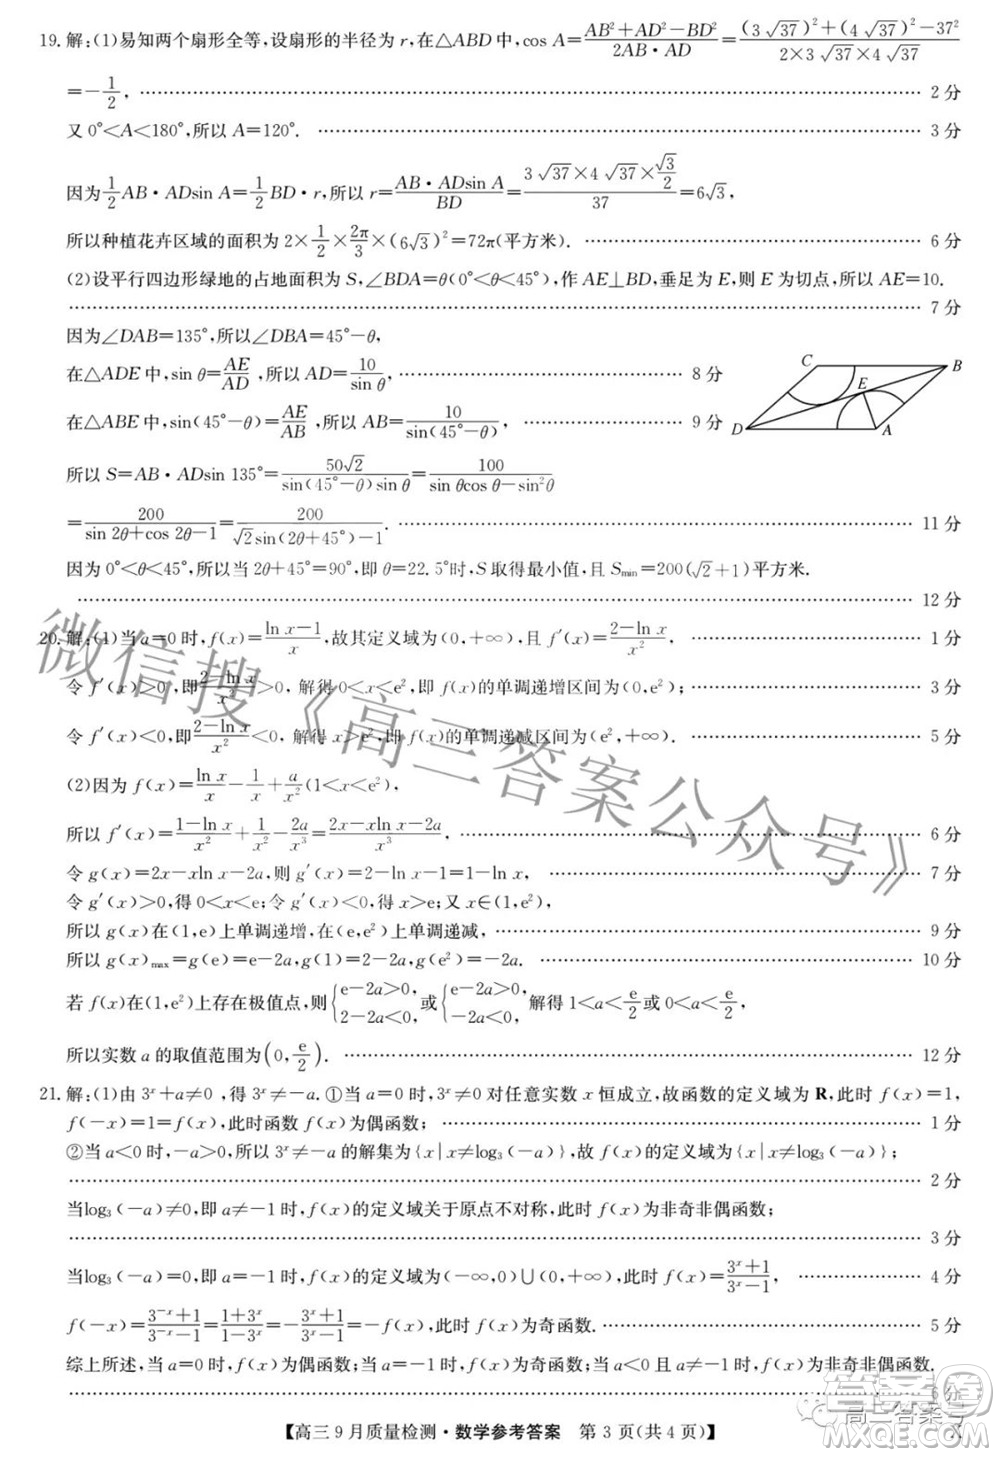 19. 解:(1)易知两个扇形全等,设扇形的半径为 r,在△ABD 中,cos A=(AB²+AD²−BD²)/(2AB·AD)=((3√37)²+(4√37)²−37²)/(2×3√37×4√37)
=−1/2, …… 2 分
又 0°<A<180°,所以 A=120°. …… 3 分
因为 1/2 AB·ADsin A=1/2 BD·r,所以 r=(AB·ADsin A)/BD=(3√37×4√37×√3/2)/37=6√3,
所以种植花卉区域的面积为 2×1/2×2π/3×(6√3)²=72π(平方米). …… 6 分
(2)设平行四边形绿地的占地面积为 S,∠BDA=θ(0°<θ<45°),作 AE⊥BD,垂足为 E,则 E 为切点,所以 AE=10.
…… 7 分
因为∠DAB=135°,所以∠DBA=45°−θ,
在△ADE 中,sin θ=AE/AD,所以 AD=10/sin θ, …… 8 分
在△ABE 中,sin(45°−θ)=AE/AB,所以 AB=10/sin(45°−θ), …… 9 分
C B E D A
所以 S=AB·ADsin 135°=50√2/(sin(45°−θ)sin θ)=100/(sin θcos θ−sin²θ)
=200/(sin 2θ+cos 2θ−1)=200/(√2sin(2θ+45°)−1). …… 11 分
因为 0°<θ<45°,所以当 2θ+45°=90°,即 θ=22.5°时,S 取得最小值,且 Smin=200(√2+1)平方米.
…… 12 分
20. 解:(1)当 a=0 时,f(x)=(ln x−1)/x,故其定义域为(0,+∞),且 f′(x)=(2−ln x)/x², …… 1 分
令 f′(x)>0,即(2−ln x)/x²>0,解得 0<x<e²,即 f(x)的单调递增区间为(0,e²); …… 3 分
令 f′(x)<0,即(2−ln x)/x²<0,解得 x>e²,即 f(x)的单调递减区间为(e²,+∞). …… 5 分
(2)因为 f(x)=ln x/x−1/x+a/x²(1<x<e²),
所以 f′(x)=(1−ln x)/x²+1/x²−2a/x³=(2x−xln x−2a)/x³. …… 6 分
令 g(x)=2x−xln x−2a,则 g′(x)=2−ln x−1=1−ln x, …… 7 分
令 g′(x)>0,得 0<x<e;令 g′(x)<0,得 x>e;又 x∈(1,e²),
所以 g(x)在(1,e)上单调递增,在(e,e²)上单调递减, …… 9 分
所以 g(x)max=g(e)=e−2a,g(1)=2−2a,g(e²)=−2a. …… 10 分
若 f(x)在(1,e²)上存在极值点,则{e−2a>0, 2−2a<0, 或{e−2a>0, −2a<0, 解得 1<a<e/2或 0<a<e/2,
所以实数 a 的取值范围为(0,e/2). …… 12 分
21. 解:(1)由 3ˣ+a≠0,得 3ˣ≠−a.①当 a=0 时,3ˣ≠0 对任意实数 x 恒成立,故函数的定义域为 R,此时 f(x)=1,
f(−x)=1=f(x),此时函数 f(x)为偶函数; …… 1 分
②当 a<0 时,−a>0,所以 3ˣ≠−a 的解集为{x|x≠log₃(−a)},故 f(x)的定义域为{x|x≠log₃(−a)};
…… 2 分
当log₃(−a)≠0,即 a≠−1 时,f(x)的定义域关于原点不对称,此时 f(x)为非奇非偶函数;
…… 3 分
当log₃(−a)=0,即 a=−1 时,f(x)的定义域为(−∞,0)∪(0,+∞),此时 f(x)=(3ˣ+1)/(3ˣ−1), …… 4 分
f(−x)=(3⁻ˣ+1)/(3⁻ˣ−1)=(1+3ˣ)/(1−3ˣ)=−(3ˣ+1)/(3ˣ−1)=−f(x),此时函数 f(x)为奇函数. …… 5 分
综上所述,当 a=0 时,f(x)为偶函数;当 a=−1 时,f(x)为奇函数;当 a<0且 a≠−1 时,f(x)为非奇非偶函数.
…… 6 分
【高三 9 月质量检测·数学参考答案 第 3 页(共 4 页)】 X
微信搜《高三答案公众号》
高三答案号
答案圈
MXQE.COM